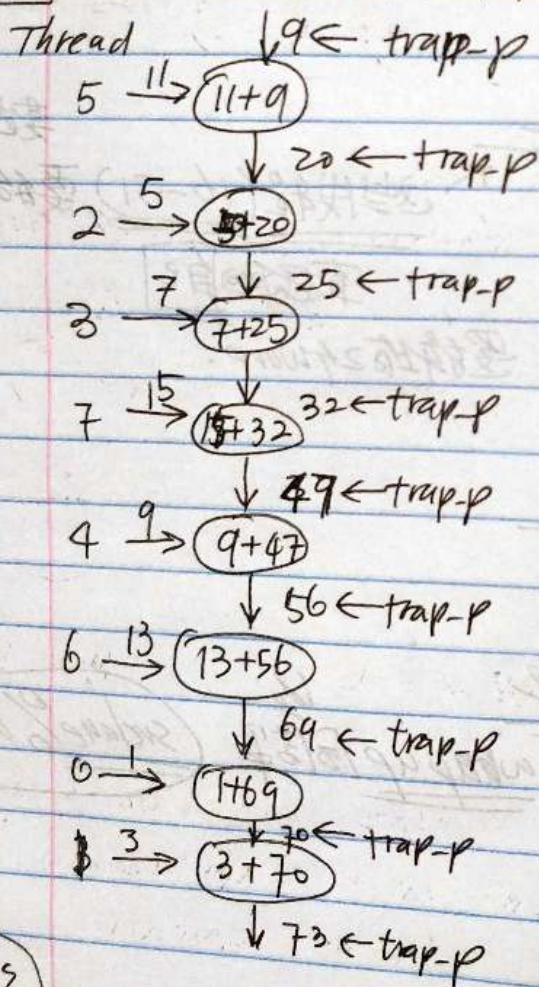 Thread
9 ← trap-p
5 11→ 11+9
20 ← trap-p
2 5→ 5+20
25 ← trap-p
3 7→ 7+25
32 ← trap-p
7 15→ 15+32
47 ← trap-p
4 9→ 9+47
56 ← trap-p
6 13→ 13+56
69 ← trap-p
0 1→ 1+69
70 ← trap-p
1 3→ 3+70
73 ← trap-p
s